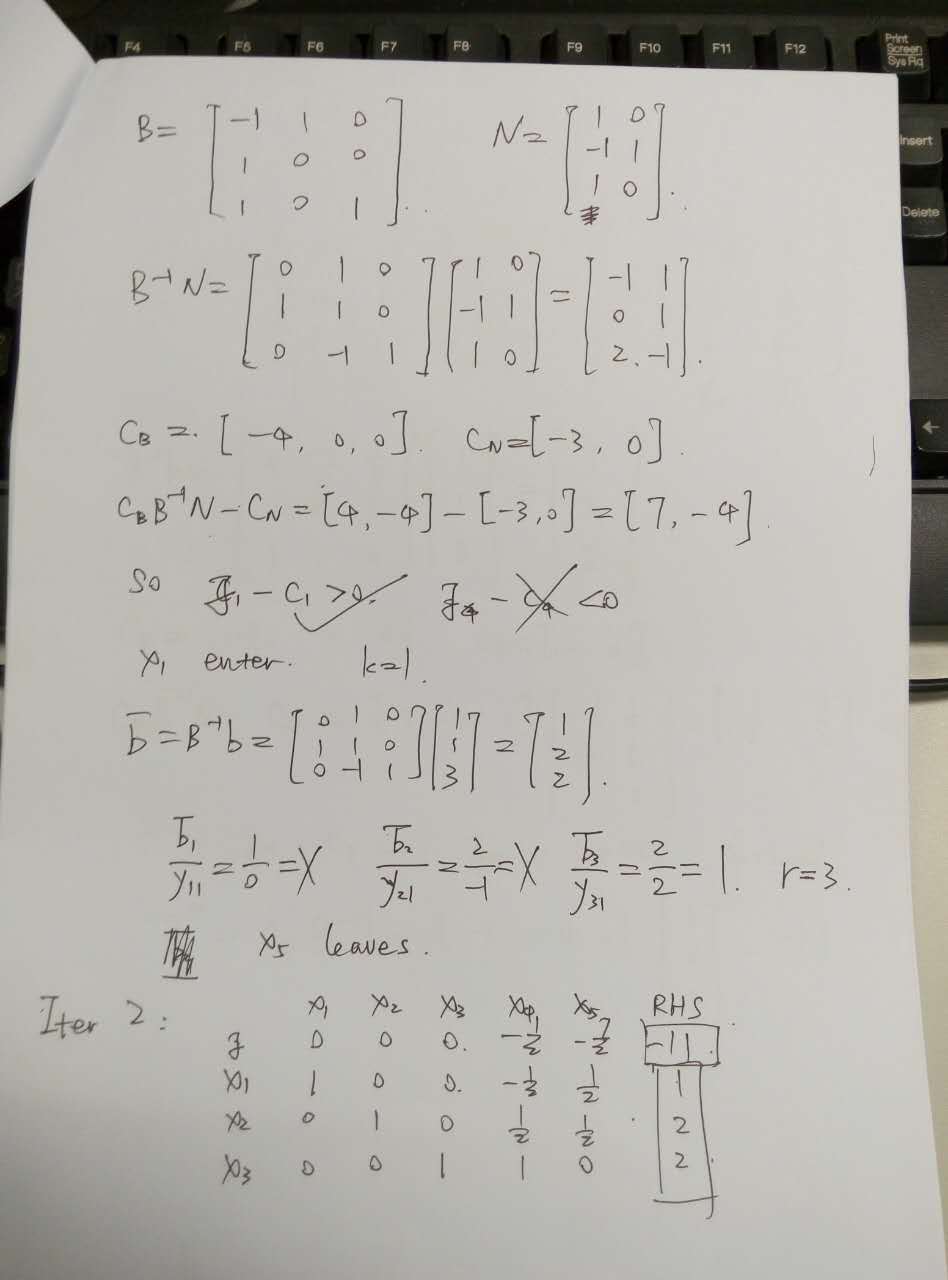 F4 F5 F6 F7 F8 F9 F10 F11 F12 Print Screen SysRq
Insert
Delete
←
B = [-1 1 0; 1 0 0; 1 0 1]. N = [1 0; -1 1; 1 0].
B⁻¹N = [0 1 0; 1 1 0; 0 -1 1] [1 0; -1 1; 1 0] = [-1 1; 0 1; 2 -1].
C_B = [-4, 0, 0]. C_N = [-3, 0].
C_B B⁻¹N - C_N = [4, -4] - [-3, 0] = [7, -4].
So z₁ - c₁ > 0. ✓ z₄ - c₄ < 0
x₁ enter. k=1.
b̄ = B⁻¹b = [0 1 0; 1 1 0; 0 -1 1] [1; 1; 3] = [1; 2; 2].
b̄₁/y₁₁ = 1/0 = X b̄₂/y₂₁ = 2/-1 = X b̄₃/y₃₁ = 2/2 = 1. r=3.
x₅ leaves.
Iter 2: x₁ x₂ x₃ x₄ x₅ RHS
z 0 0 0. -1/2 -7/2 -11.
x₁ 1 0 0. -1/2 1/2 1
x₂ 0 1 0 1/2 1/2 2
x₃ 0 0 1 1 0 2